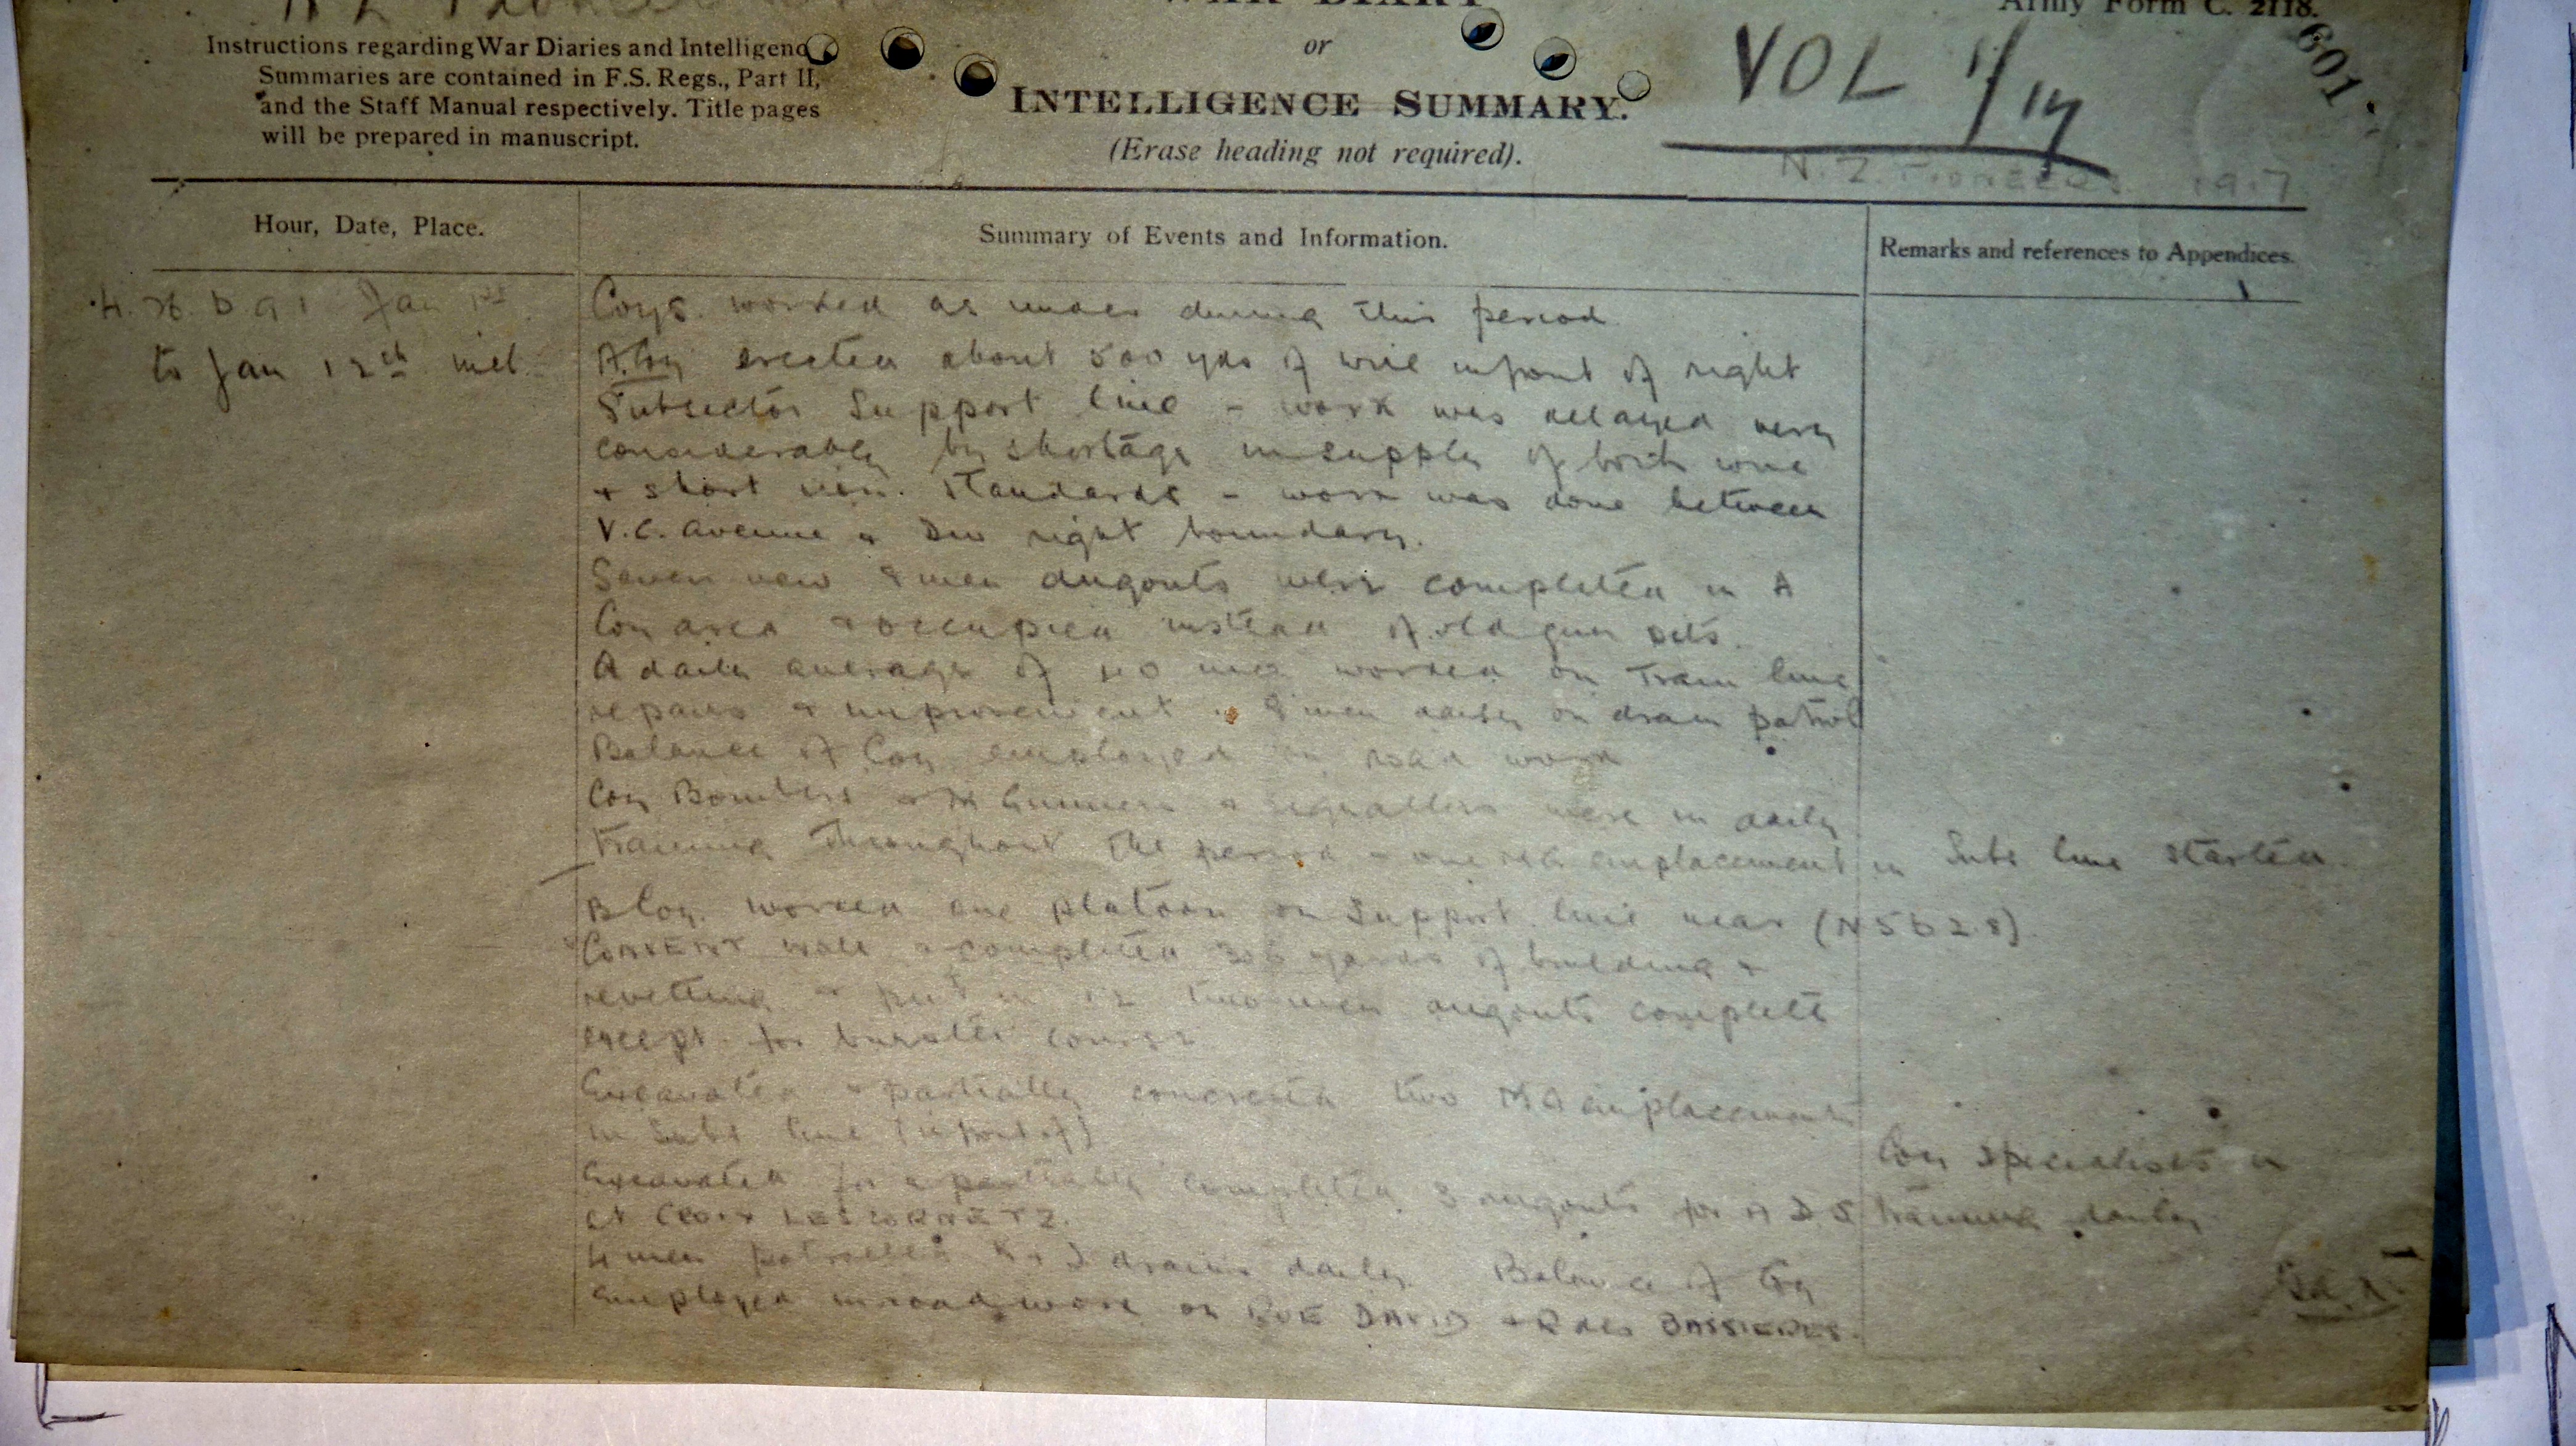 WAR DIARY
Army Form C. 2118.
Instructions regarding War Diaries and Intelligence
Summaries are contained in F.S. Regs., Part II,
and the Staff Manual respectively. Title pages
will be prepared in manuscript.
or
INTELLIGENCE SUMMARY.
(Erase heading not required).
VOL 1/14
601
N.Z. Pioneers 1917
Hour, Date, Place.
Summary of Events and Information.
Remarks and references to Appendices.
Jan 1st
to Jan 12th incl.
Coys. worked as under during this period
A Coy erected about 500 yds of wire in front of right
Subsector Support line - work was delayed very
considerably by shortage in supply of both wire
+ short iron standards - work was done between
V.C. Avenue + Div right boundary.
Seven new 8 men dugouts were completed in A
Coy area + occupied instead of old gun pits.
A daily average of 40 men worked on Tram line
repairs + improvement + 8 men daily on drain patrol
Balance of Coy employed on road work
Coy Bombers + M Gunners + signallers were in daily
training throughout the period - one MG emplacement in Subs line started.
B Coy. worked one platoon on Support line near (N5b2.8).
CONVENT WALL + completed 306 yards of building +
revetting + put in 12 two men dugouts complete
except for burster course
Excavated + partially concreted two MG emplacements
in Subs line (in front of)
Excavated for + partially completed 3 dugouts for A.D.S.
at CROIX LESCORNEZ
4 men patrolled drains daily. Balance of Coy
employed on road work on RUE DAVID + R des BASSIERES.
Coy specialists in
training daily